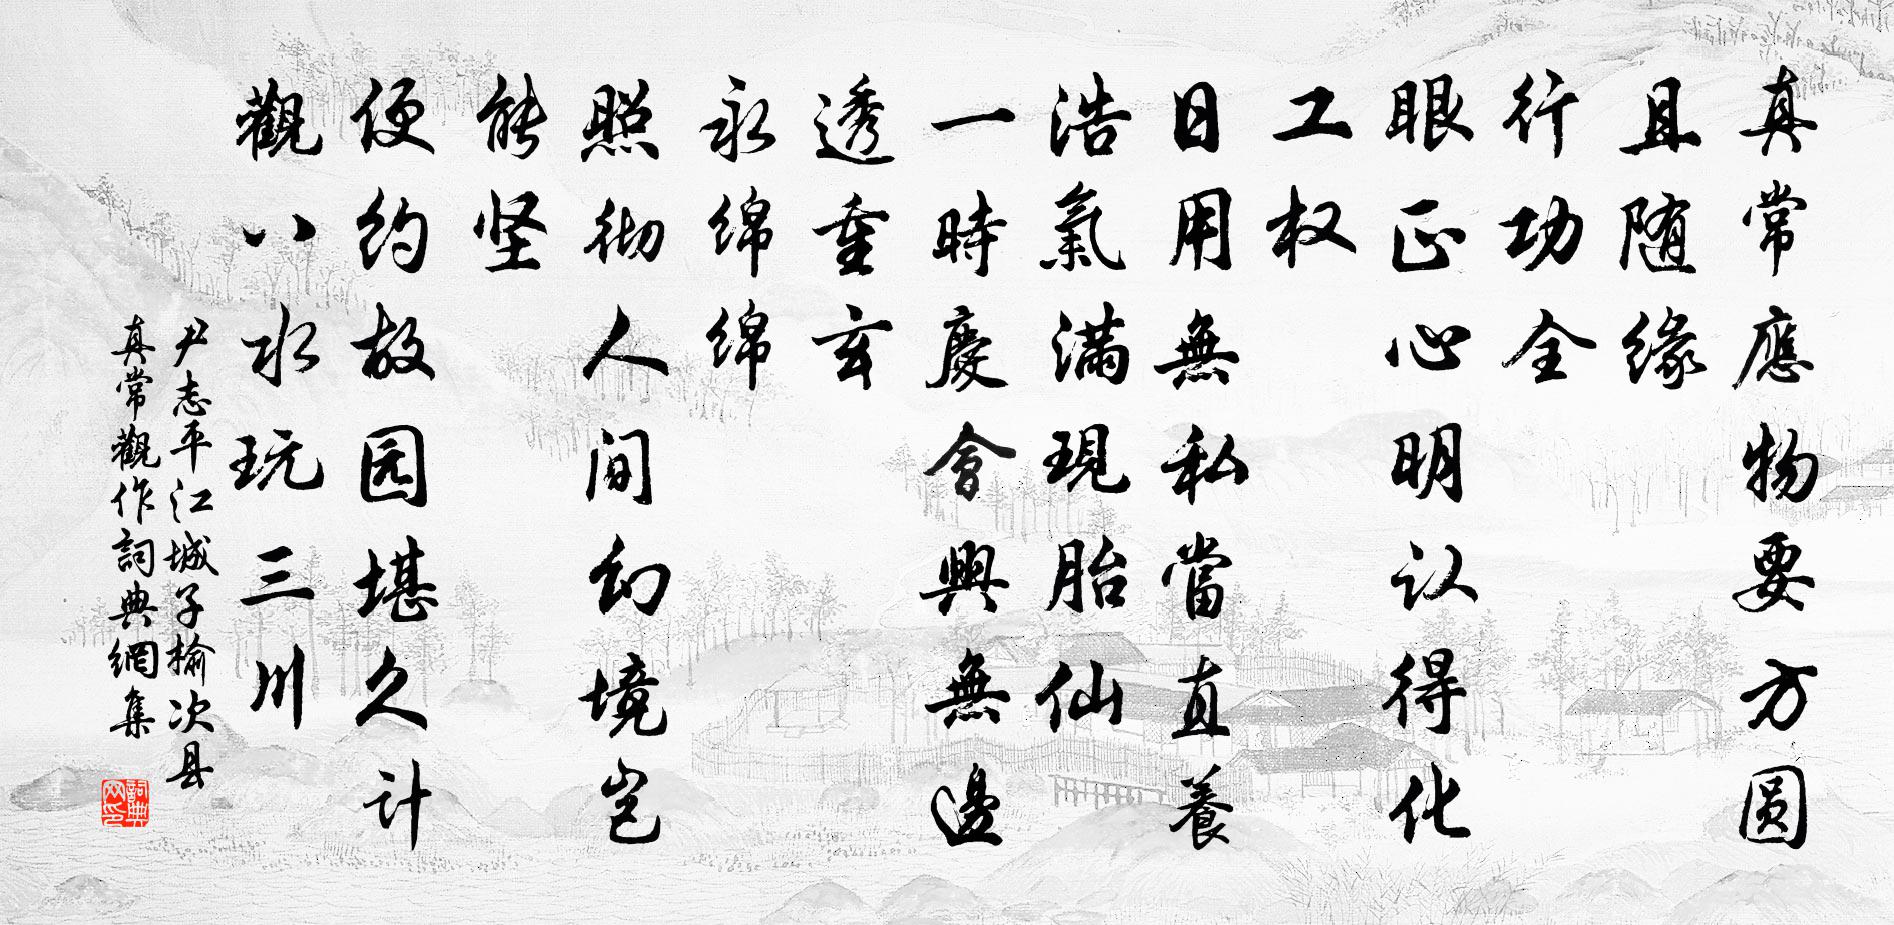 真常應物要方圆
且随缘
行功全
眼正心明认得化
工权
日用無私當直養
浩氣滿現胎仙
一時慶會興無邊
透重玄
永绵绵
照彻人间幻境岂
能坚
便约故园堪久计
觀八水玩三川
尹志平江城子榆次县
真常觀作詞典網集
詞典
网印